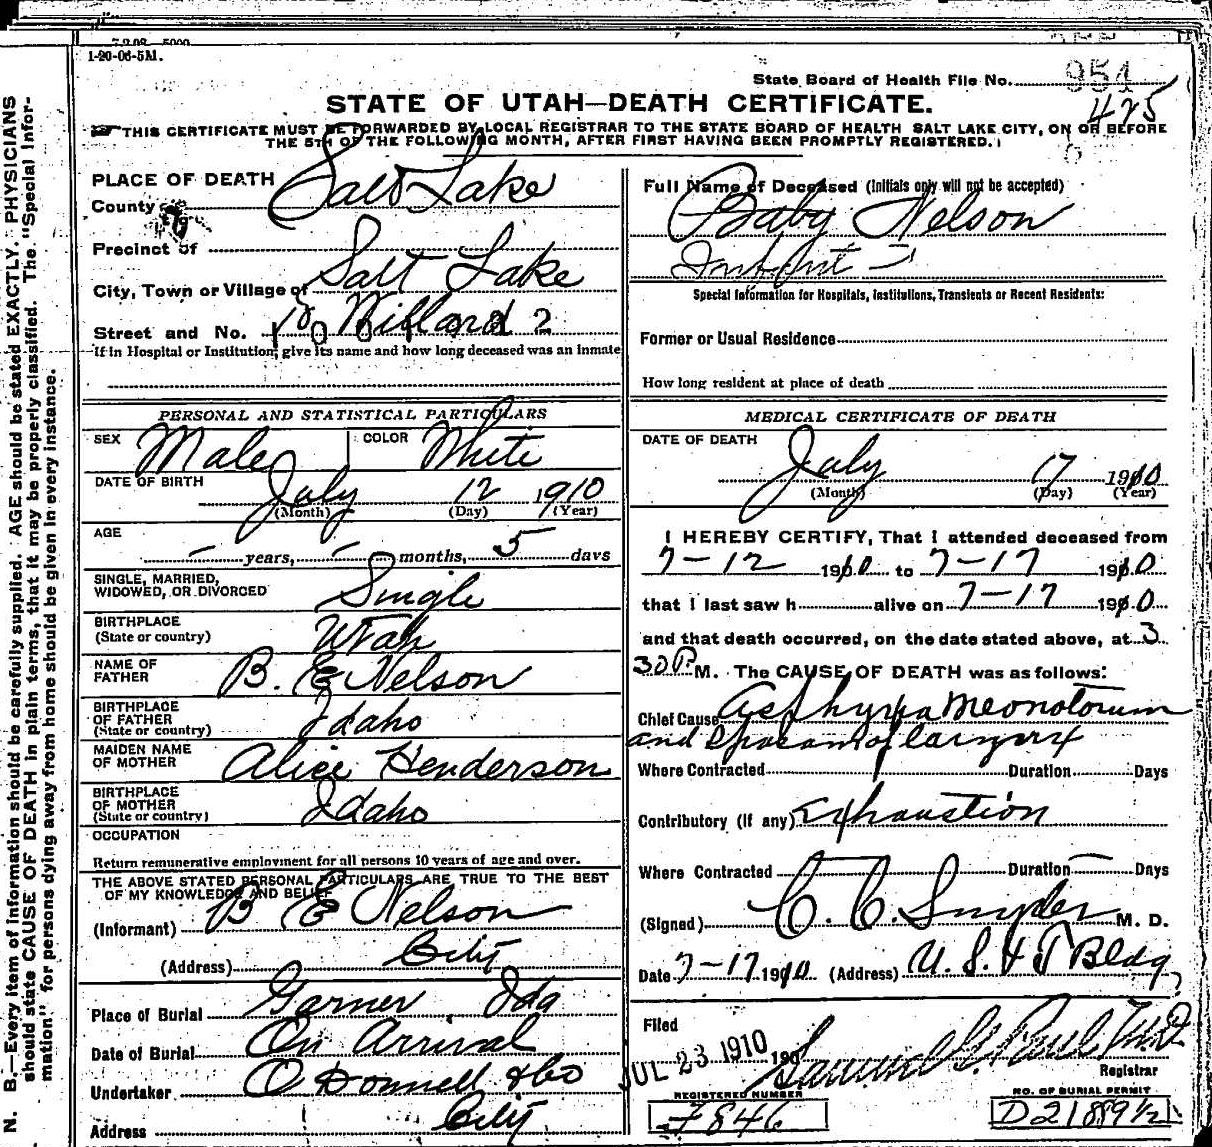 1-20-06-5M.
State Board of Health File No. 951
425
STATE OF UTAH—DEATH CERTIFICATE.
THIS CERTIFICATE MUST BE FORWARDED BY LOCAL REGISTRAR TO THE STATE BOARD OF HEALTH SALT LAKE CITY, ON OR BEFORE
THE 5TH OF THE FOLLOWING MONTH, AFTER FIRST HAVING BEEN PROMPTLY REGISTERED.
N. B.—Every item of information should be carefully supplied. AGE should be stated EXACTLY. PHYSICIANS
should state CAUSE OF DEATH in plain terms, that it may be properly classified. The "Special Infor-
mation" for persons dying away from home should be given in every instance.
PLACE OF DEATH
County Salt Lake
Precinct of
City, Town or Village of Salt Lake
Street and No. Willard 2
If in Hospital or Institution, give its name and how long deceased was an inmate
PERSONAL AND STATISTICAL PARTICULARS
SEX Male COLOR White
DATE OF BIRTH July 12 1910
(Month) (Day) (Year)
AGE
— years, — months, 5 days
SINGLE, MARRIED,
WIDOWED, OR DIVORCED Single
BIRTHPLACE
(State or country) Utah
NAME OF
FATHER B. E Nelson
BIRTHPLACE
OF FATHER
(State or country) Idaho
MAIDEN NAME
OF MOTHER Alice Henderson
BIRTHPLACE
OF MOTHER
(State or country) Idaho
OCCUPATION
Return remunerative employment for all persons 10 years of age and over.
THE ABOVE STATED PERSONAL PARTICULARS ARE TRUE TO THE BEST
OF MY KNOWLEDGE AND BELIEF
(Informant) B E Nelson
(Address) City
Place of Burial Garner Ida
Date of Burial On Arrival
Undertaker O Donnell & Co
Address City
Full Name of Deceased (Initials only will not be accepted)
Baby Nelson
Infant
Special Information for Hospitals, Institutions, Transients or Recent Residents:
Former or Usual Residence
How long resident at place of death
MEDICAL CERTIFICATE OF DEATH
DATE OF DEATH
July 17 1910
(Month) (Day) (Year)
I HEREBY CERTIFY, That I attended deceased from
7-12 1910 to 7-17 1910
that I last saw h alive on 7-17 1910
and that death occurred, on the date stated above, at 3
330 P. M. The CAUSE OF DEATH was as follows:
Chief Cause Asphyxia Neonotorum
and Spasam of larynx
Where Contracted Duration Days
Contributory (If any) Exhaustion
Where Contracted Duration — Days
(Signed) C. C. Snyder M. D.
Date 7-17 1910 (Address) U. S. & T Bldg
Filed
JUL 23 1910 190 Samuel G. Paul M.D.
Registrar
REGISTERED NUMBER
7846
NO. OF BURIAL PERMIT
D21889½